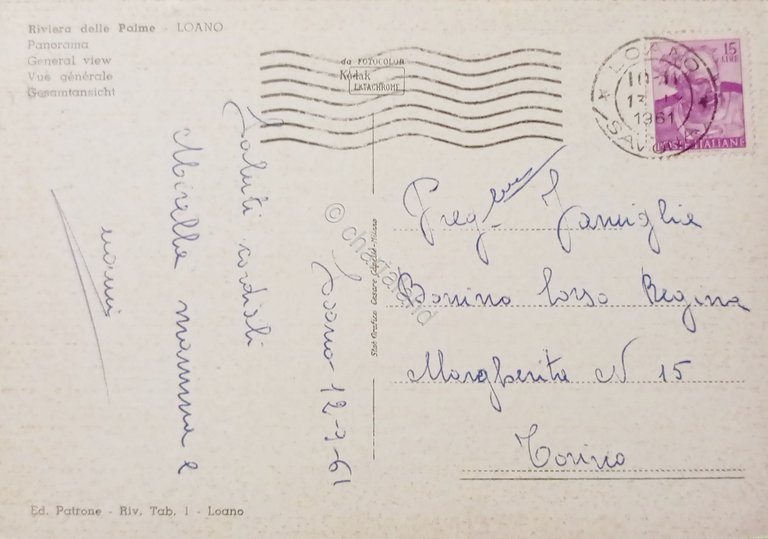 Riviera delle Palme - LOANO
Panorama
General view
Vue générale
Gesamtansicht
da FOTOCOLOR
Kodak
EKTACHROME
LOANO
13
1961
SAVONA
15
LIRE
POSTE ITALIANE
Loano - 12-9-61
Saluti cordiali
Mirella mamma e
nonni
© chartaland
Stab. Grafico Cesare Capello - Milano
Preg. Famiglia
Bonino Corso Regina
Margherita N 15
Torino
Ed. Patrone - Riv. Tab. 1 - Loano